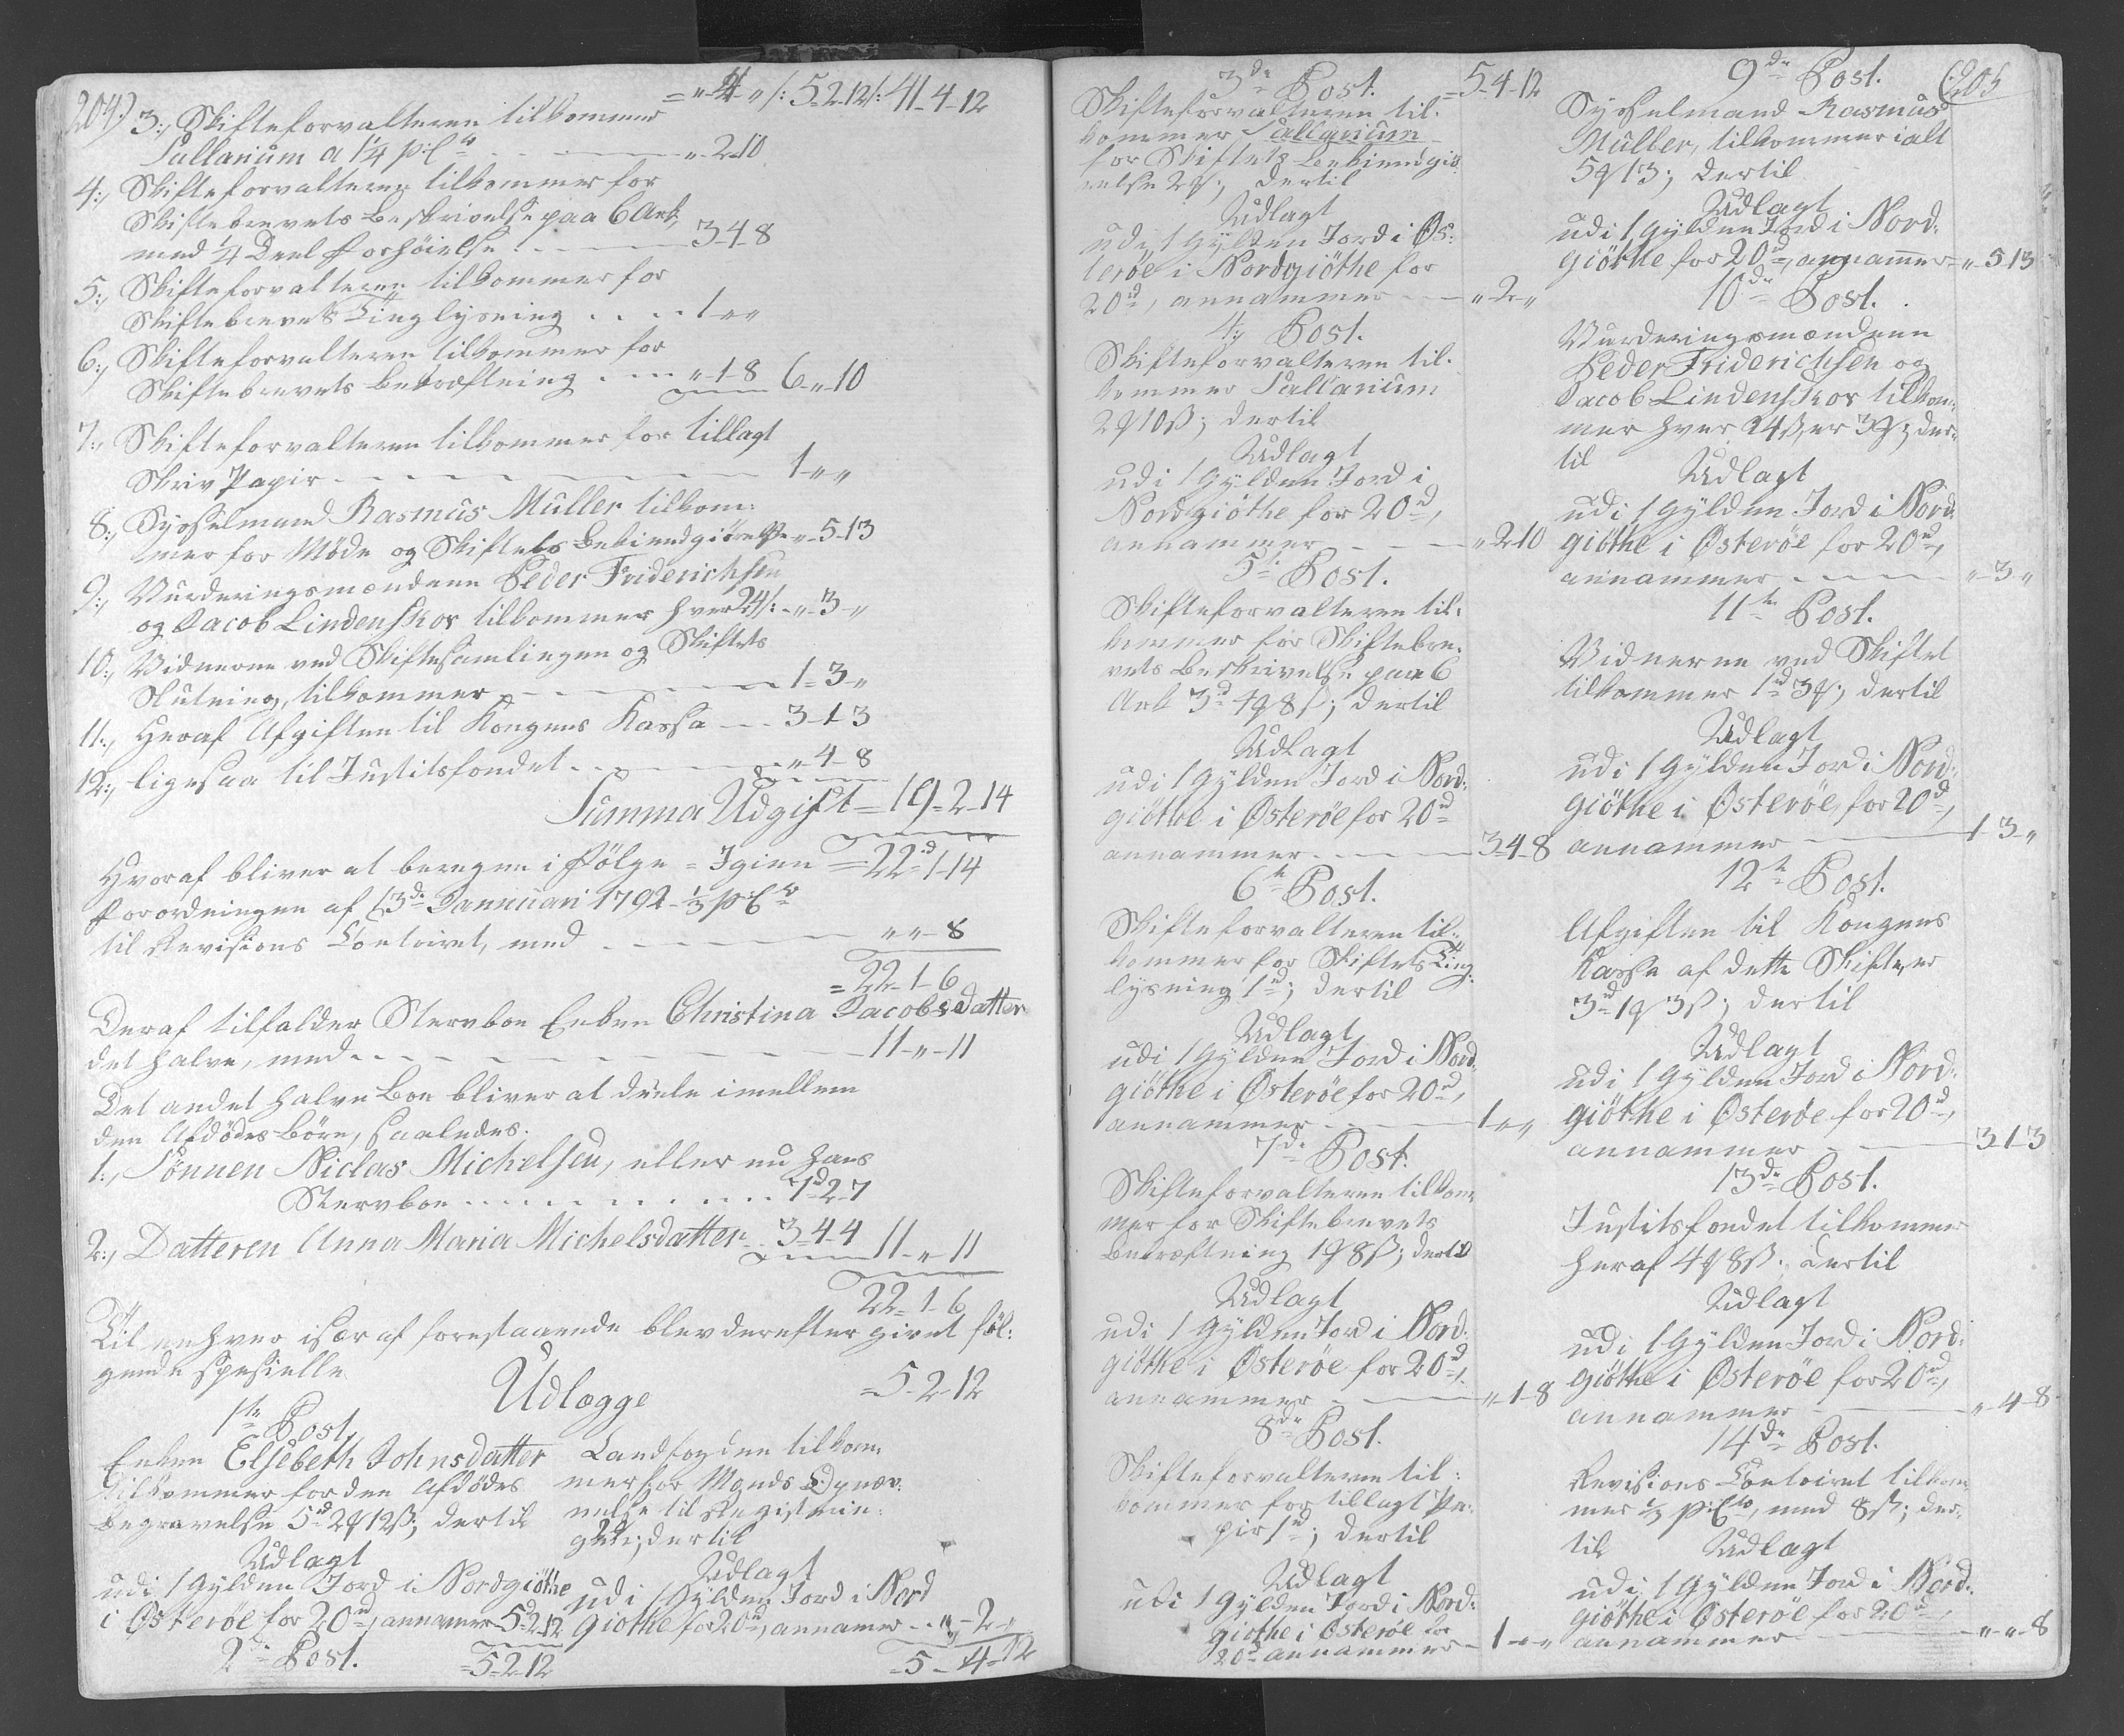 204)
= „-4-„ /: 5-2-12 /: 41-4-12
3:, Skifteforvalteren tilkommer
Sallarium a 1¼ p:Cto - - - „-2-10
4:, Skifteforvalteren tilkommer for
Skiftebrevets Beskrivelse paa 6 Ark,
med ¼ Deel Forhöielse - - - 3-4-8
5:, Skifteforvalteren tilkommer for
Skiftebrevets Tinglysning . . . . 1-„-„
6:, Skifteforvalteren tilkommer for
Skiftebrevets Bekræftning . - - - „-1-8 6-„-10
7:, Skifteforvalteren tilkommer for tillagt
Skriv Papir - - - - - 1-„-„
8:, Sysselmand Rasmus Muller tilkom-
mer for Möde og Skiftets Bekiendgiörelse „-5-13
9:, Vurderingsmændene Peder Friderichsen
og Jacob Lindenskov tilkommer hver 24 /: - „-3-„
10:, Vidnerne ved Skiftesamlingen og Skiftets
Slutning, tilkommer - - - - 1-3-„
11:, Heraf Afgiften til Kongens Kassa - - 3-1-3
12:, ligesaa til Justitsfondet - - - - „-4-8
Summa Udgift = 19-2-14
Hvoraf bliver at beregne i Fölge = Igien = 22d-1-14
Forordningen af 13de Januari 1792 - ⅓ p:Cto
til Revisions Contoiret, med - - - - „-„-8
= 22-1-6
Deraf tilfalder Stervboe Enken Christina Jacobsdatter
det halve, med - - - - - 11-„-11
Det andet halve Boe bliver at deele imellem
den Afdödes Börn, saaledes.
1:, Sönnen Niclas Michelsen, eller nu hans
Stervboe - - - - - 7d-2-7
2:, Datteren Anna Maria Michelsdatter - 3-4-4 11-„-11
22-1-6
Til enhver især af forestaaende blev derefter givet föl-
gende spesielle
Udlægge
1te Post.
Enken Elsebeth Johnsdatter
tilkommer for den Afdödes
Begravelse 5d 2q 12ß; dertil
Udlagt
udi 1 Gylden Jord i Nordgiöthe
i Österöe for 20d, annamer 5d-2-12
2de Post.
= 5-2-12
= 5-2-12
Landfogden tilkom-
mer for Mands
til Registrin-
dertil
Udlagt
udi 1 Gylden Jord i Nord
Giöthe for 20d, annamer - - „-2-„
= 5-4-12
3de Post.
= 5-4-12
Skifteforvalteren til-
kommer Sallarium
for Skiftets Bekiendgiö-
relse 2q; dertil
Udlagt
udi 1 Gylden Jord i Ös-
teröe i Nordgiöthe for
20d, annammer - - „-2-„
4:, Post.
Skifteforvalteren til-
kommer Sallarium
2q 10ß; dertil
Udlagt
udi 1 Gylden Jord i
Nordgiöthe for 20d,
annammer - - - „-2-10
5te Post.
Skifteforvalteren til-
kommer for Skiftebre-
vets Beskrivelse paa 6
Ark 3d 4q 8ß; dertil
Udlagt
udi 1 Gylden Jord i Nord-
giöthe i Österöe for 20d
annammer - - - 3-4-8
6te Post.
Skifteforvalteren til-
kommer for Skiftets Ting-
lysning 1d; dertil
Udlagt
udi 1 Gylden Jord i Nord-
giöthe i Österöe for 20d,
annammer - - - 1-„-„
7de Post.
Skifteforvalteren tilkom-
mer for Skiftebrevets
Bekræftning 1q 8ß; dertil
Udlagt
udi 1 Gylden Jord i Nord-
giöthe i Österöe for 20d,
annammer - - - „-1-8
8de Post.
Skifteforvalteren til-
kommer for tillagt Pa-
pir 1d; dertil
Udlagt
udi 1 Gylden Jord i Nord-
giöthe i Österöe for
20d annammer - 1-„-„
9de Post.
(205
Sysselmand Rasmus
Muller, tilkommer ialt
5q 13; dertil
Udlagt
udi 1 Gylden Jord i Nord-
giöthe for 20d, annamer - „-5-13
10de Post.
Vurderingsmændene
Peder Friderichsen og
Jacob Lindenskov tilkom-
mer hver 24ß, er 3q; der-
til
Udlagt
udi 1 Gylden Jord i Nord-
giöthe i Österöe for 20d,
annammer - - - - „-3-„
11te Post.
Vidnerne ved Skiftet
tilkommer 1d 3q; dertil
Udlagt
udi 1 Gylden Jord i Nord-
giöthe i Österöe for 20d,
annammer - - - 1-3-„
12te Post.
Afgiften til Kongens
Kassa af dette Skifte, er
3d 1q 3ß; dertil
Udlagt
udi 1 Gylden Jord i Nord-
giöthe i Österöe for 20d,
annammer - - - 3-1-3
13de Post.
Justitsfondet tilkommer
heraf 4q 8ß; dertil
Udlagt
udi 1 Gylden Jord i Nord-
giöthe i Österöe for 20d,
annammer - - - „-4-8
14de Post.
Revisions-Contoiret tilkom-
mer ⅓ p:Cto, med 8ß; der-
til
Udlagt
udi 1 Gylden Jord i Nord-
giöthe i Österöe for 20d,
annammer - - - „-„-8